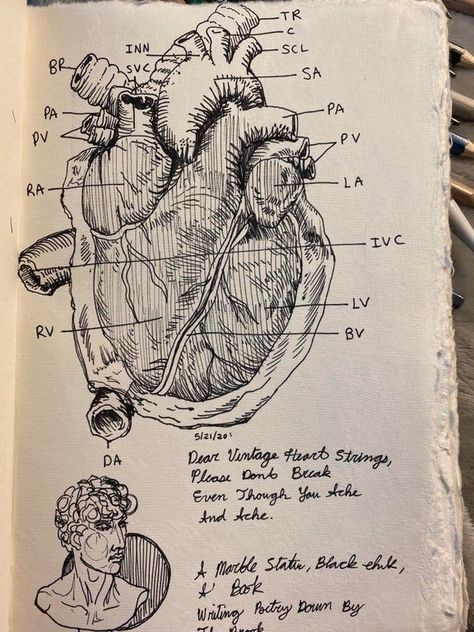 TR
C
INN
SCL
BR
SVC
SA
PA
PA
PV
PV
RA
LA
IVC
LV
RV
BV
DA
5/21/20:
Dear Vintage Heart Strings,
Please Dont Break
Even Though You Ache
And Ache.
A Marble Statu, Black Ink,
A Book
Writing Poetry Down By
The Brook